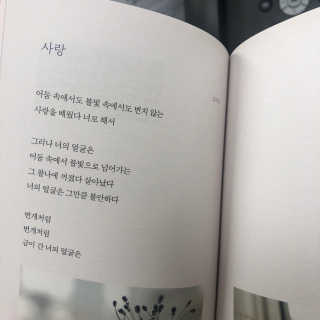 사랑
어둠 속에서도 불빛 속에서도 변치 않는
사랑을 배웠다 너로 해서
그러나 너의 얼굴은
어둠 속에서 불빛으로 넘어가는
그 찰나에 꺼졌다 살아났다
너의 얼굴은 그만큼 불안하다
번개처럼
번개처럼
금이 간 너의 얼굴은